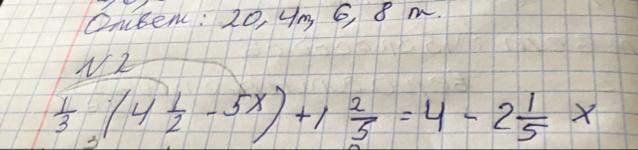 Ответ: 20,4т, 6,8 т.
N2
1/3 (4 1/2 - 5x) + 1 2/5 = 4 - 2 1/5 x